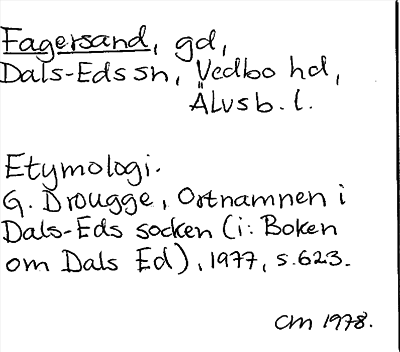 Fagersand, gd,
Dals-Eds sn, Vedbo hd,
Älvsb. l.
Etymologi.
G. Drougge, Ortnamnen i
Dals-Eds socken (i: Boken
om Dals Ed), 1977, s. 623.
CM 1978.